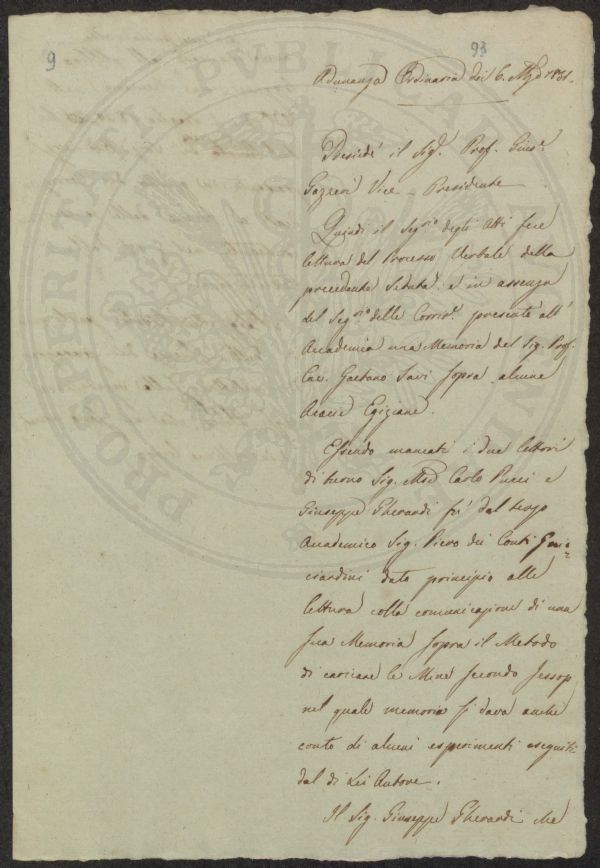 9
93
Adunanza Ordinaria dei 6. Mag.o 1831.
Presiedé il Sig.r Prof. Gius.e
Gazzeri Vice-Presidente
Quindi il Seg.rio degli Atti fece
lettura del Processo Verbale della
precedente Seduta e in assenza
del Seg.rio delle Corrisp.e presentò all'
Accademia una Memoria del Sig. Prof.
Cav. Gaetano Savi sopra alcune
Acacie Egiziane.
Essendo mancati i due lettori
di turno Sig. Carlo Pucci e
Giuseppe Gherardi fu dal terzo
Accademico Sig. Piero dei Conti Guic=
ciardini dato principio alle
lettura colla comunicazione di una
sua Memoria sopra il Metodo
di caricare le Mine secondo Jessop
nel quale memoria si dava anche
conto di alcuni esperimenti eseguiti
dal di Lei Autore.
Il Sig. Giuseppe Gherardi
PROSPERITATI PUBLICAE